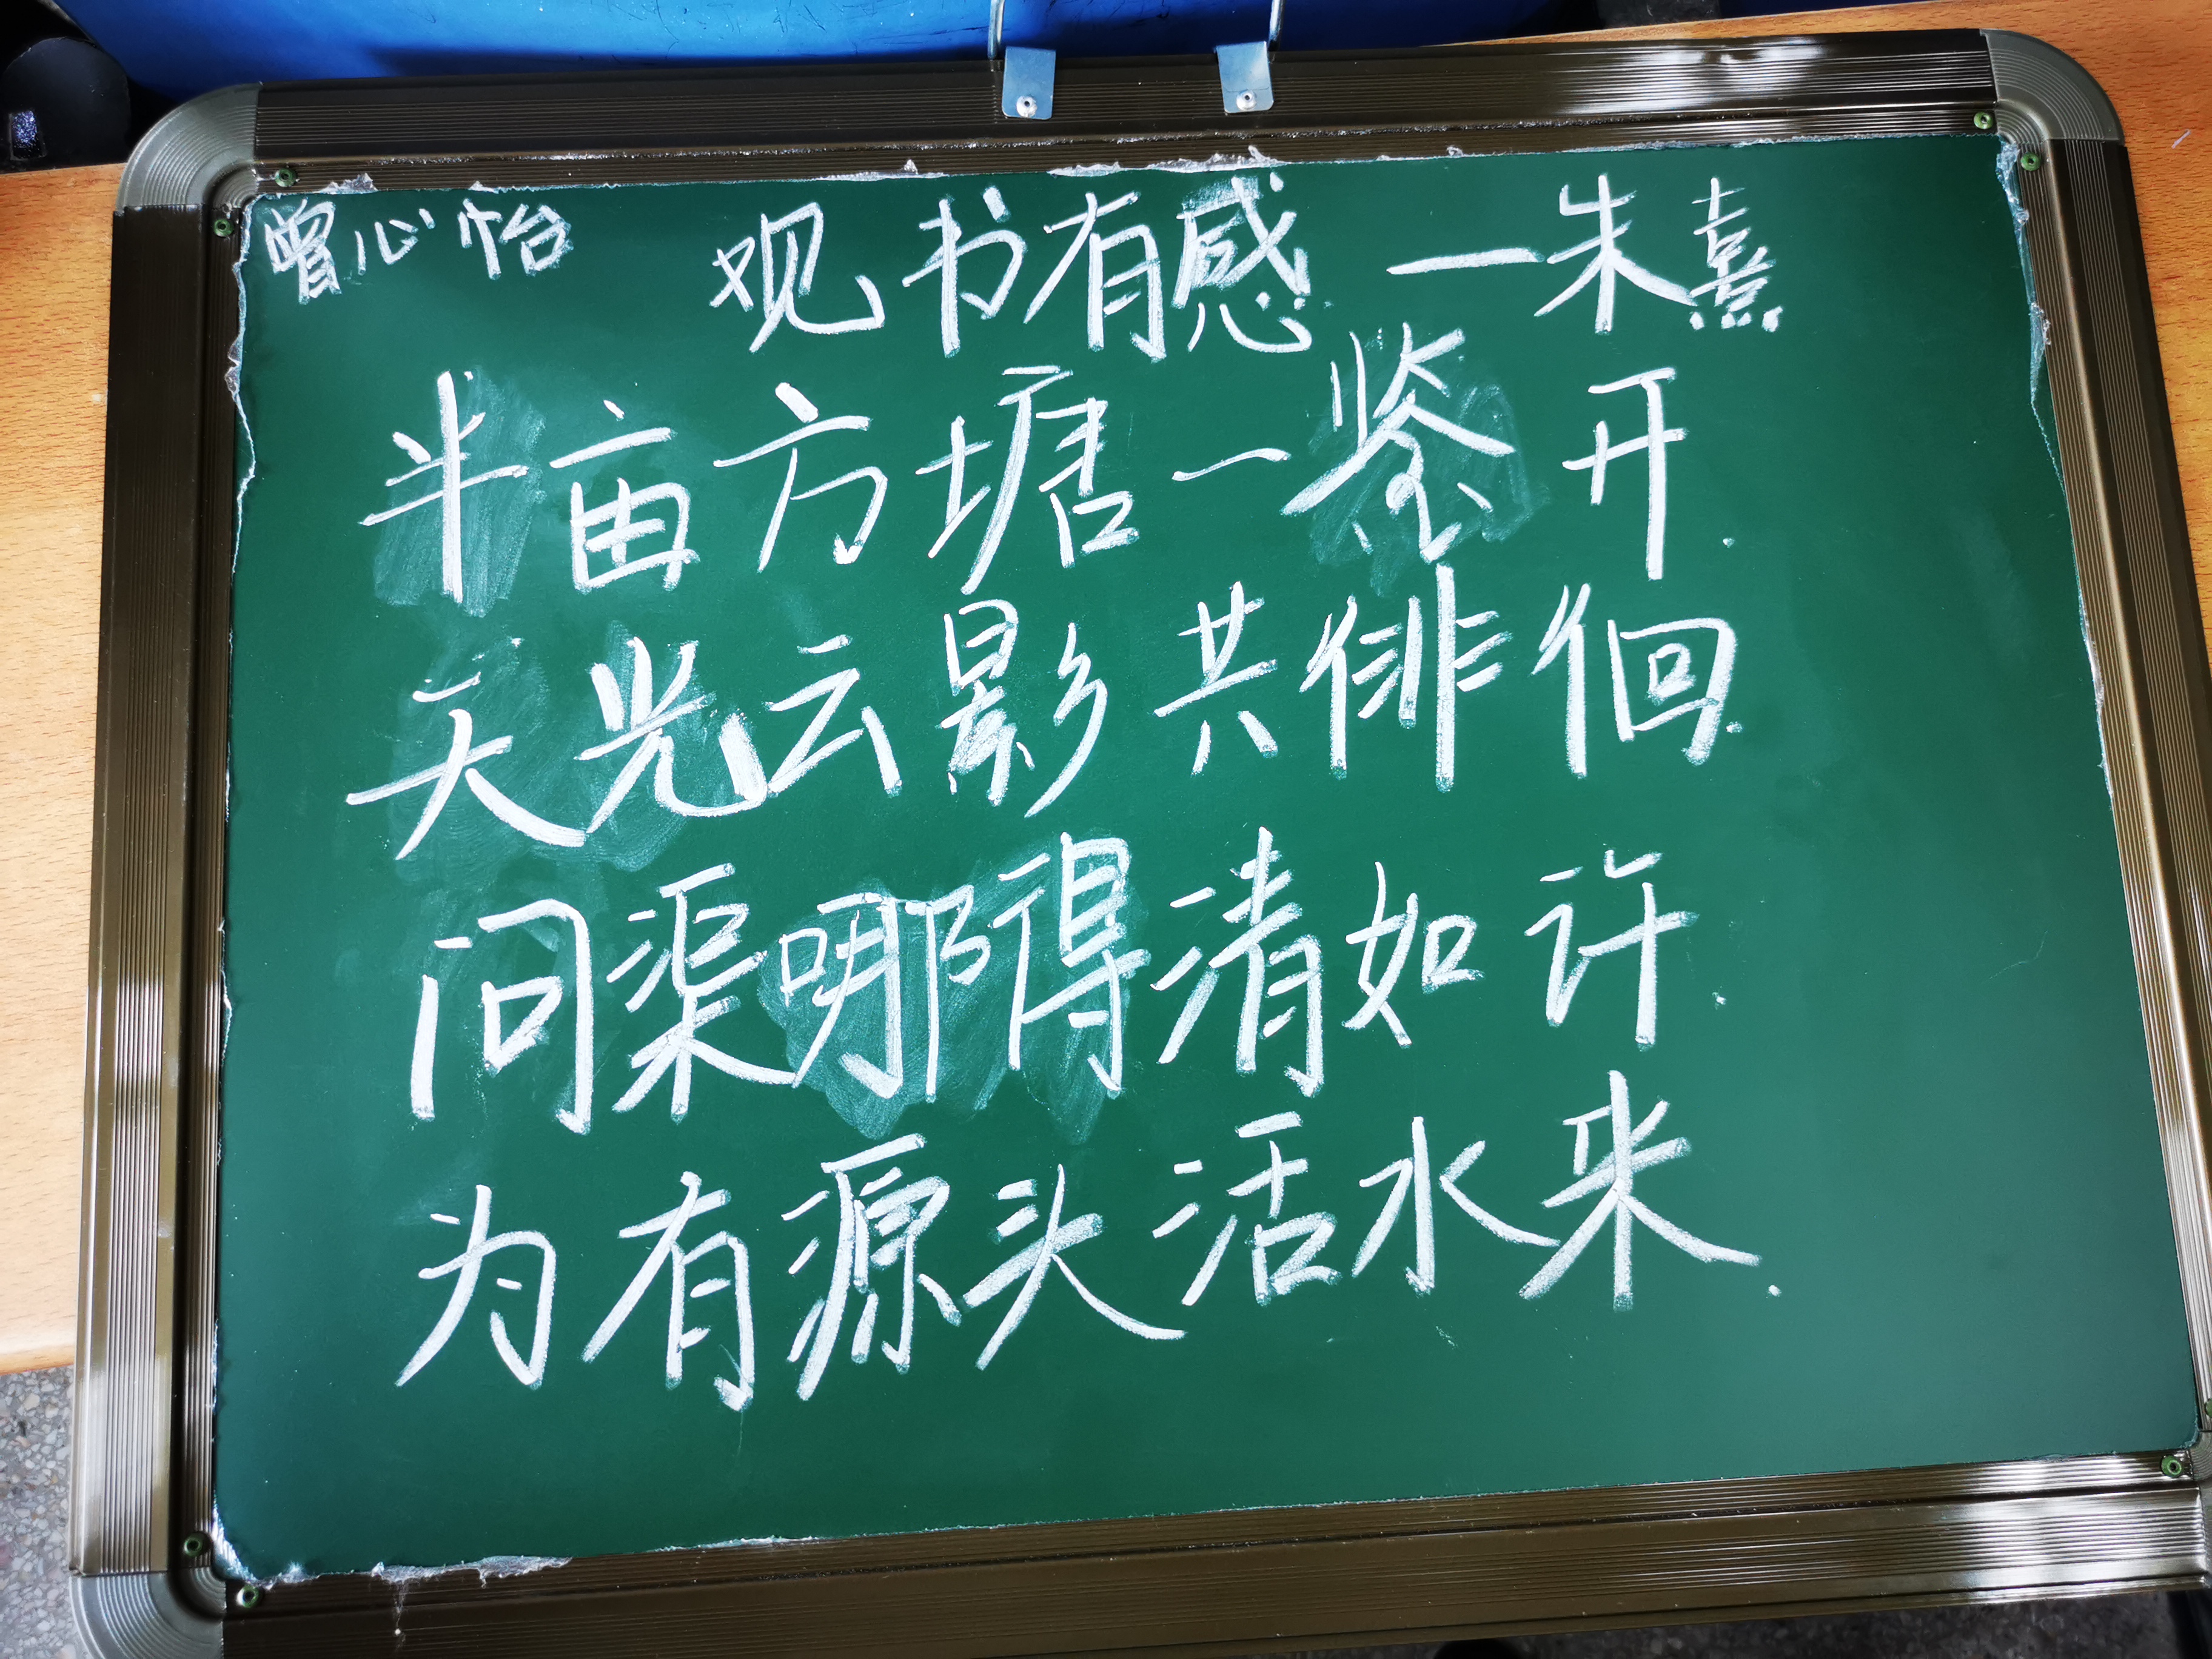 曾心怡 观书有感 一朱熹
半亩方塘一鉴开.
天光云影共徘徊.
问渠哪得清如许.
为有源头活水来.